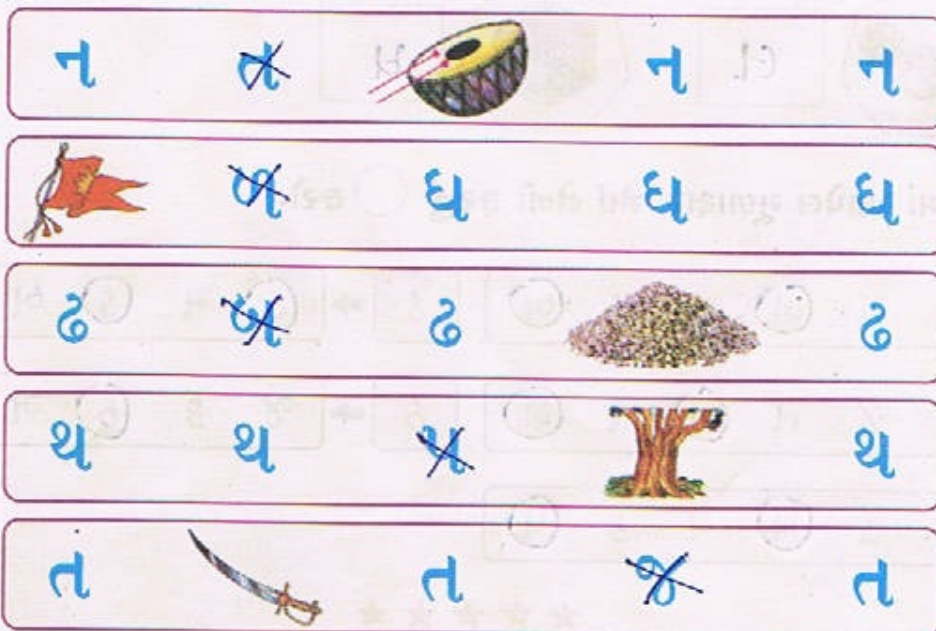 ન ત ન ન
ળ ધ ધ ધ
ઢ ઢ ઢ
થ થ થ
ત ત જ ત